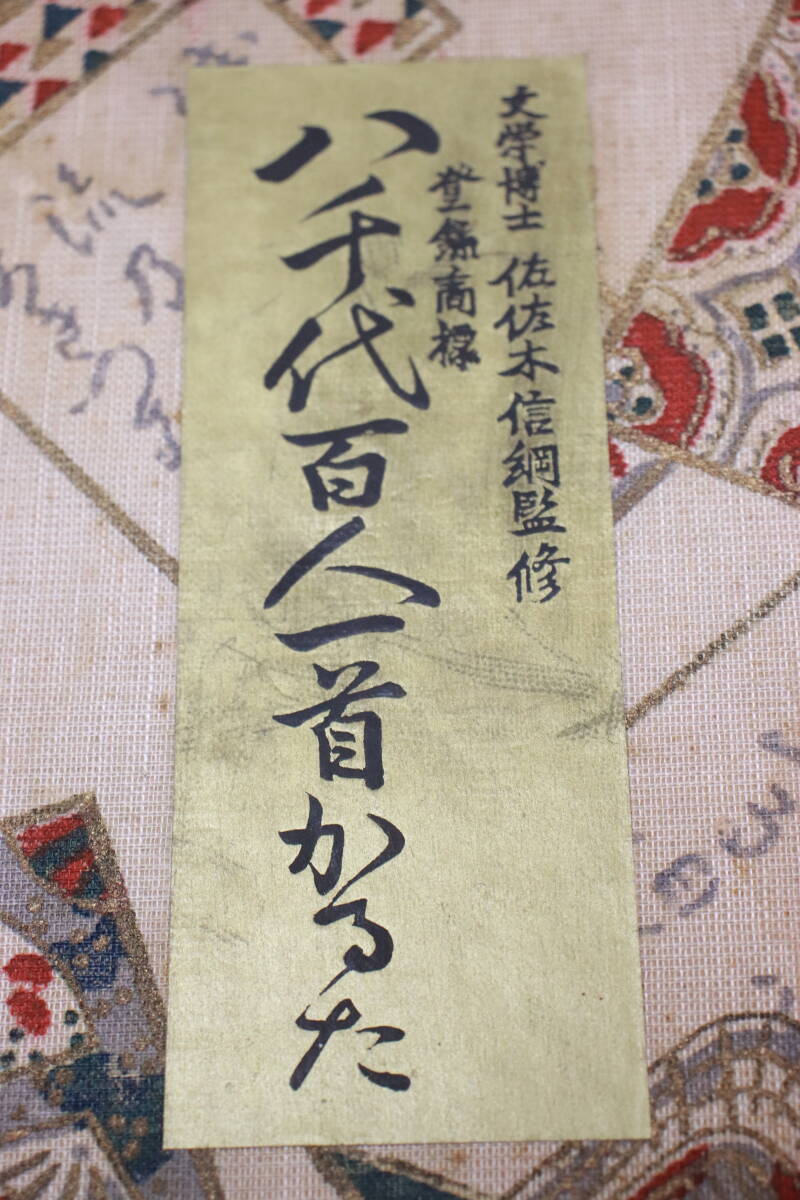 文学博士 佐佐木信綱監修
登録商標
八千代百人一首かるた